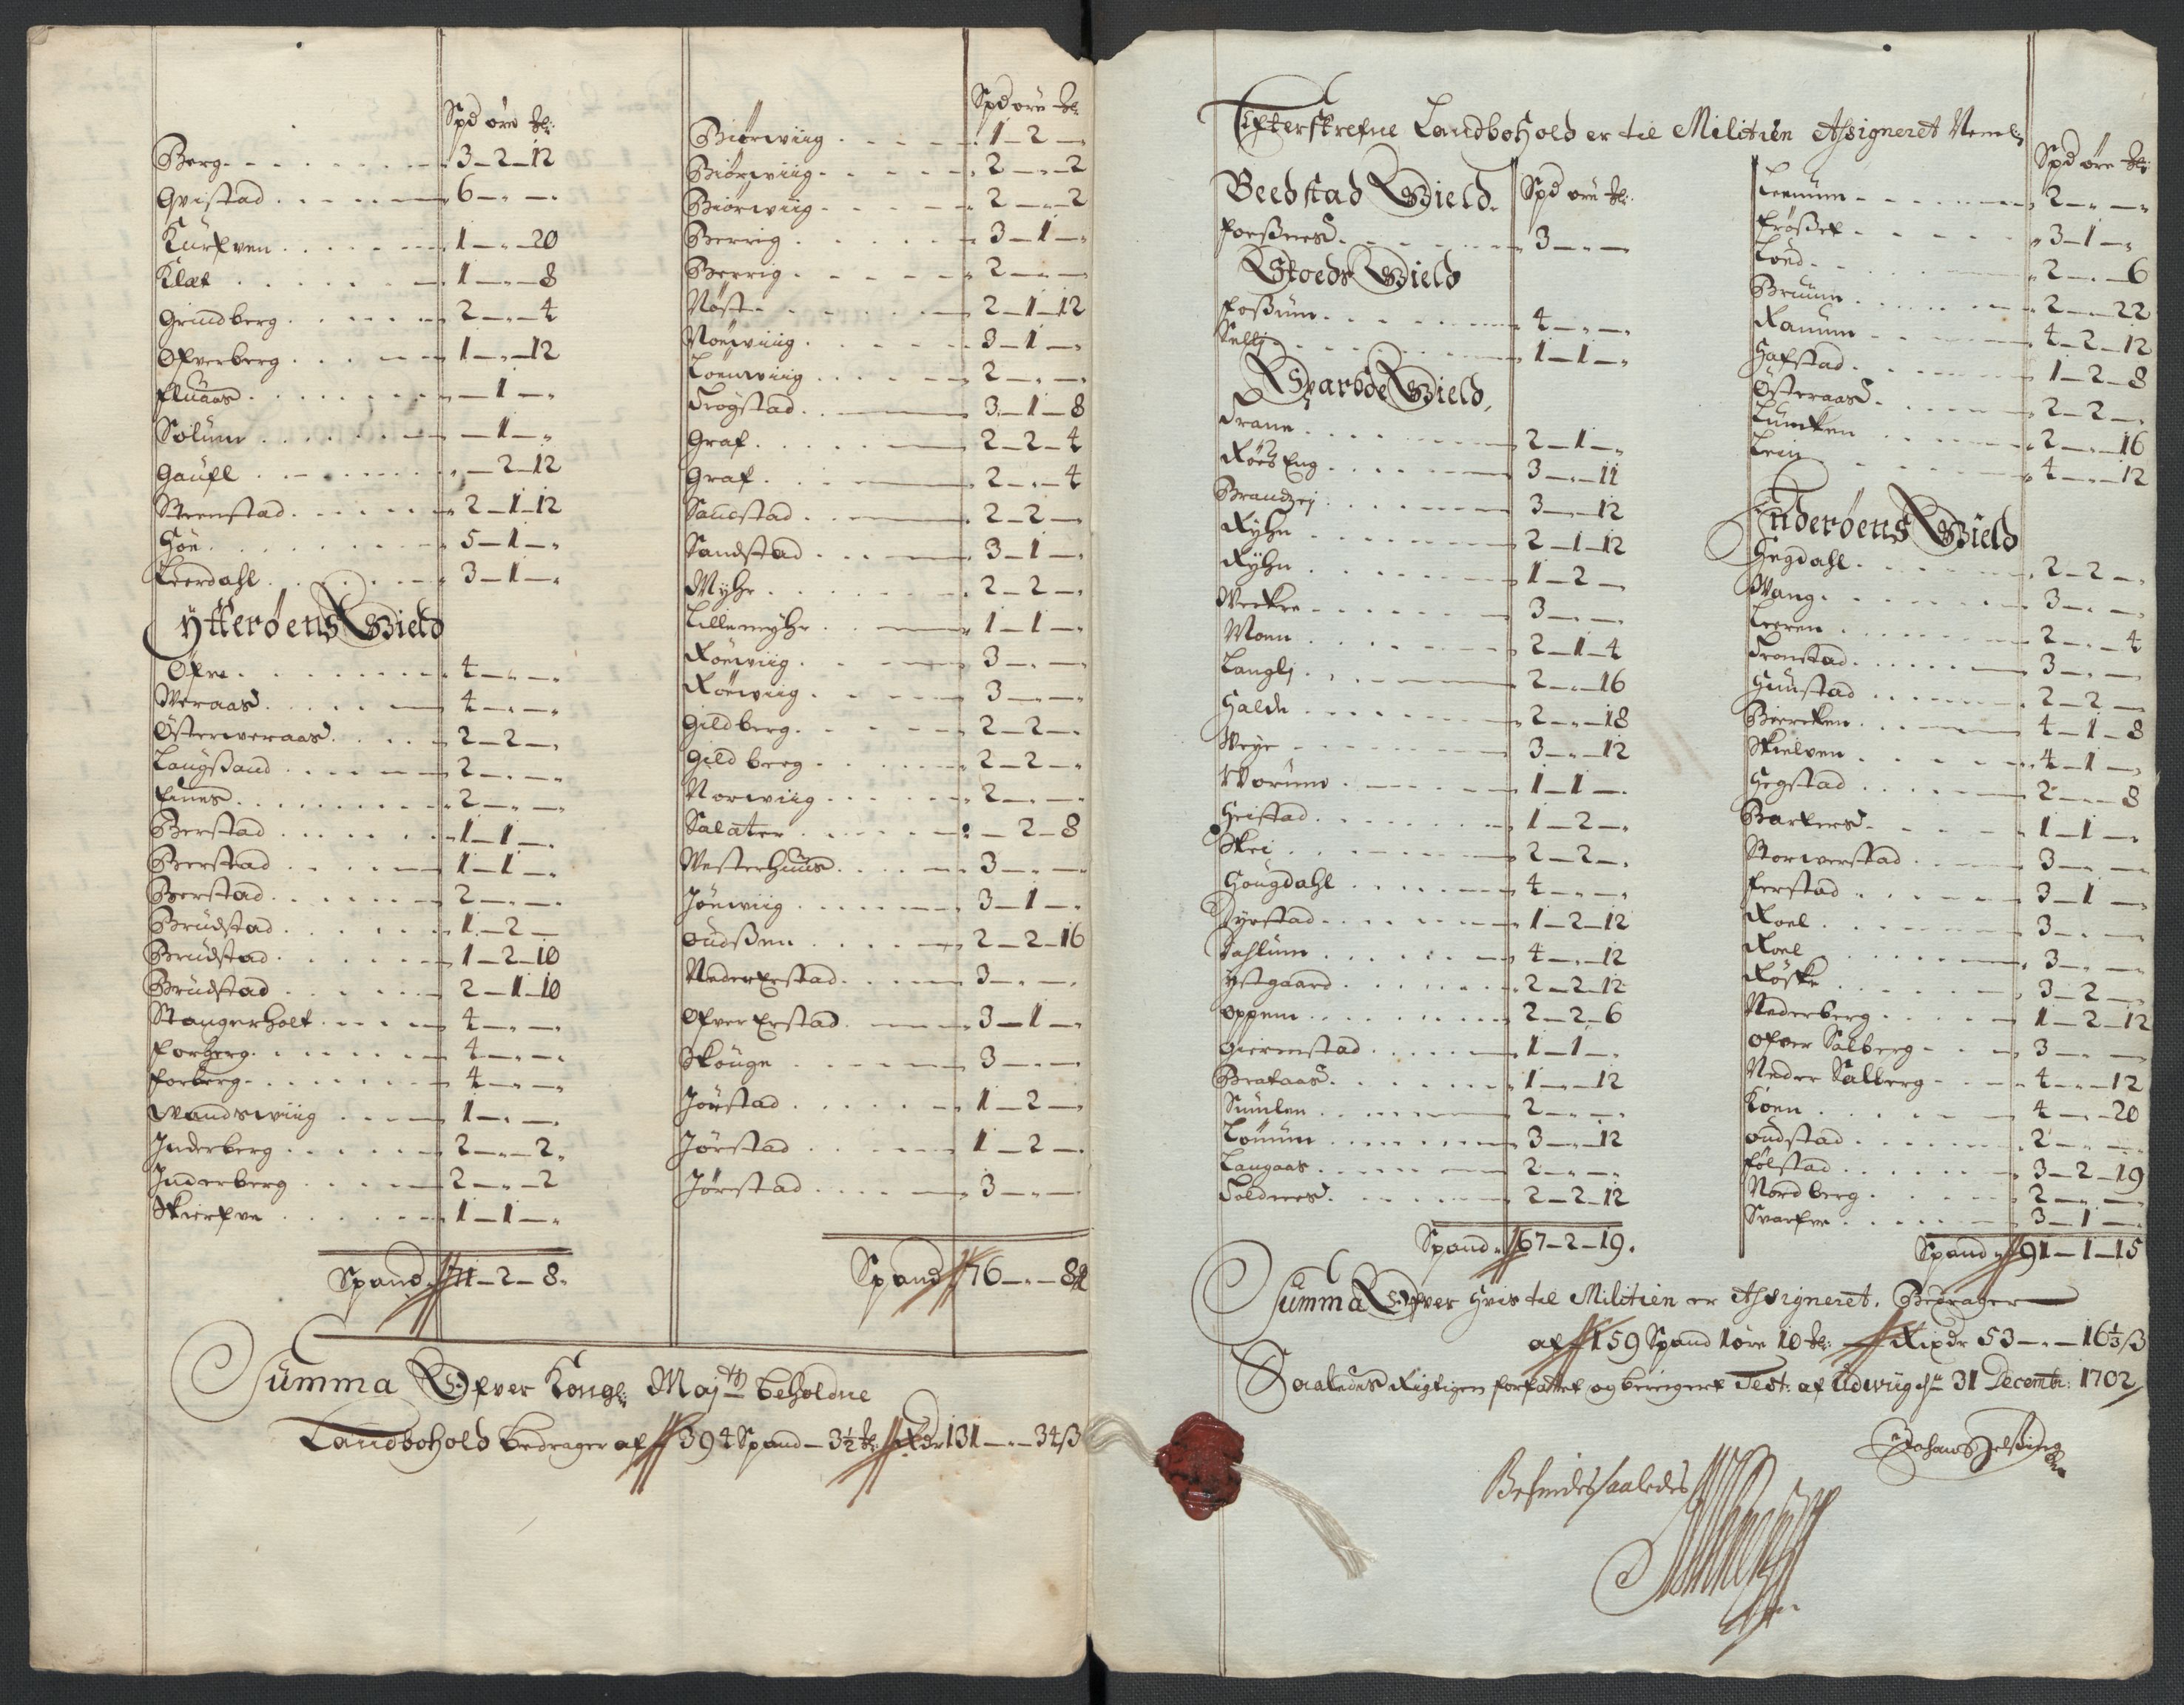 Spd øre ſℓ:
Berg 3-2-12
Qvistad 6-"-"
Kurfven 1-"-20
Klæt 1-"-8
Grindberg 2-"-4
Ofverberg 1-"-12
Fluaas "-1-"
Solum "-1-"
Gaufl "-2-12
Steenstad 2-1-12
Høe 5-1-"
Leerdahl 3-1-"
Ytterøens Gield
Øfre 4-"-"
Weraas 4-"-"
Østerweraas 2-2-"
Langsand 2-"-"
Eines 2-"-"
Berstad 1-1-"
Berstad 1-1-"
Berstad 2-"-"
Brudstad 1-2-"
Brudstad 1-2-10
Brudstad 2-1-10
Stangerholt 4-"-"
Forberg 4-"-"
Forberg 4-"-"
Wandswiig 1-"-"
Inderberg 2-"-2
Inderberg 2-"-2
Skierfve 1-1-"
Spand 71-2-8
Spd øre
Biørwiig 1-2-"
Biørwiig 2-"-2
Biørwiig 2-"-2
Berrig 3-1-"
Berrig 2-"-"
Nøst 2-1-12
Nøewiig 3-1-"
Loenwiig 2-"-"
Frøgstad 3-1-8
Graf 2-2-4
Graf 2-"-4
Sandstad 2-2-"
Sandstad 3-1-"
Myhr 2-2-"
Lillemyhr 1-1-"
Røewiig 3-"-"
Røewiig 3-"-"
Gildberg 2-2-"
Gildberg 2-2-"
Norwiig 2-"-"
Salater "-2-8
Westerhuus 3-"-"
Jøewiig 3-1-"
Oudßen 2-2-16
Neder Erstad 3-"-"
Ofver Erstad 3-1-"
Skouge 3-"-"
Jørstad 1-2-"
Jørstad 1-2-"
Jørstad 3-"-"
Spand 76-"-8½
Summa Ofver Kongl: Maj:tts beholdne
Landbohold bedrager af 394 Spand - 3½ Rdr 131-"-34ß
Efterskrefne Landbohold er til Militien Assigneret Neml:
Beedstad Gield. Spd øre
Foeßnes 3-"-"
Stoeds Gield
Foßum 4-"-"
Sellj 1-1-"
Sparboe Gield
Frane 2-1-"
Røes Eng 3-"-11
Brandzej 3-"-12
Ryhn 2-1-12
Ryhn 1-2-"
Weekre 3-"-"
Moen 2-1-4
Langlj 2-"-16
Halde 2-"-18
Weye 3-"-12
Worum 1-1-"
Heistad 1-2-"
Skei 2-2-"
Hougdahl 4-"-"
Dyrstad 1-2-12
Dahlum 4-"-12
Ystgaard 2-2-12
Oppem 2-2-6
Gierenstad 1-1-"
Brataas 1-"-12
Sunlen 2-"-"
Lønum 3-"-12
Langaas 2-"-"
Foldnes 2-2-12
Spand 67-2-19
Spd øre
Leenum 2-"-"
Frøßet 3-1-"
Loed 2-"-6
Bruum 2-"-22
Ranum 4-2-12
Hafstad 1-2-8
Østeraas 2-2-"
Lunken 2-"-16
Lein 4-"-12
Inderøens Gield
Hegdahl 2-2-"
Wang 3-"-"
Leeren 2-"-4
Fronstad 3-"-"
Hunstad 2-2-"
Biercken 4-1-8
Skielven 4-1-"
Hegstad 2-"-8
Barfnes 1-1-"
Storwerstad 3-"-"
Ferstad 3-1-"
Roel 3-"-"
Roel 3-"-"
Røske 3-2-"
Nederberg 1-2-12
Ofver Salberg 3-"-"
Neder Salberg 4-"-12
Koen 4-"-20
Oudstad 2-"-"
Følstad 3-2-19
Nordberg 2-"-"
Svarfve 3-1-"
Spand 91-1-15
Summa Ofver hvis til Militien er Assigneret. Bedrager
af 159 Spand 1 øre 10 Rixdr 53-"-16⅓ß
Saaledes Rigtigen forfattet og berigget Test: af Udwiig d: 31 Decembr: 1702
Befindes saaledes